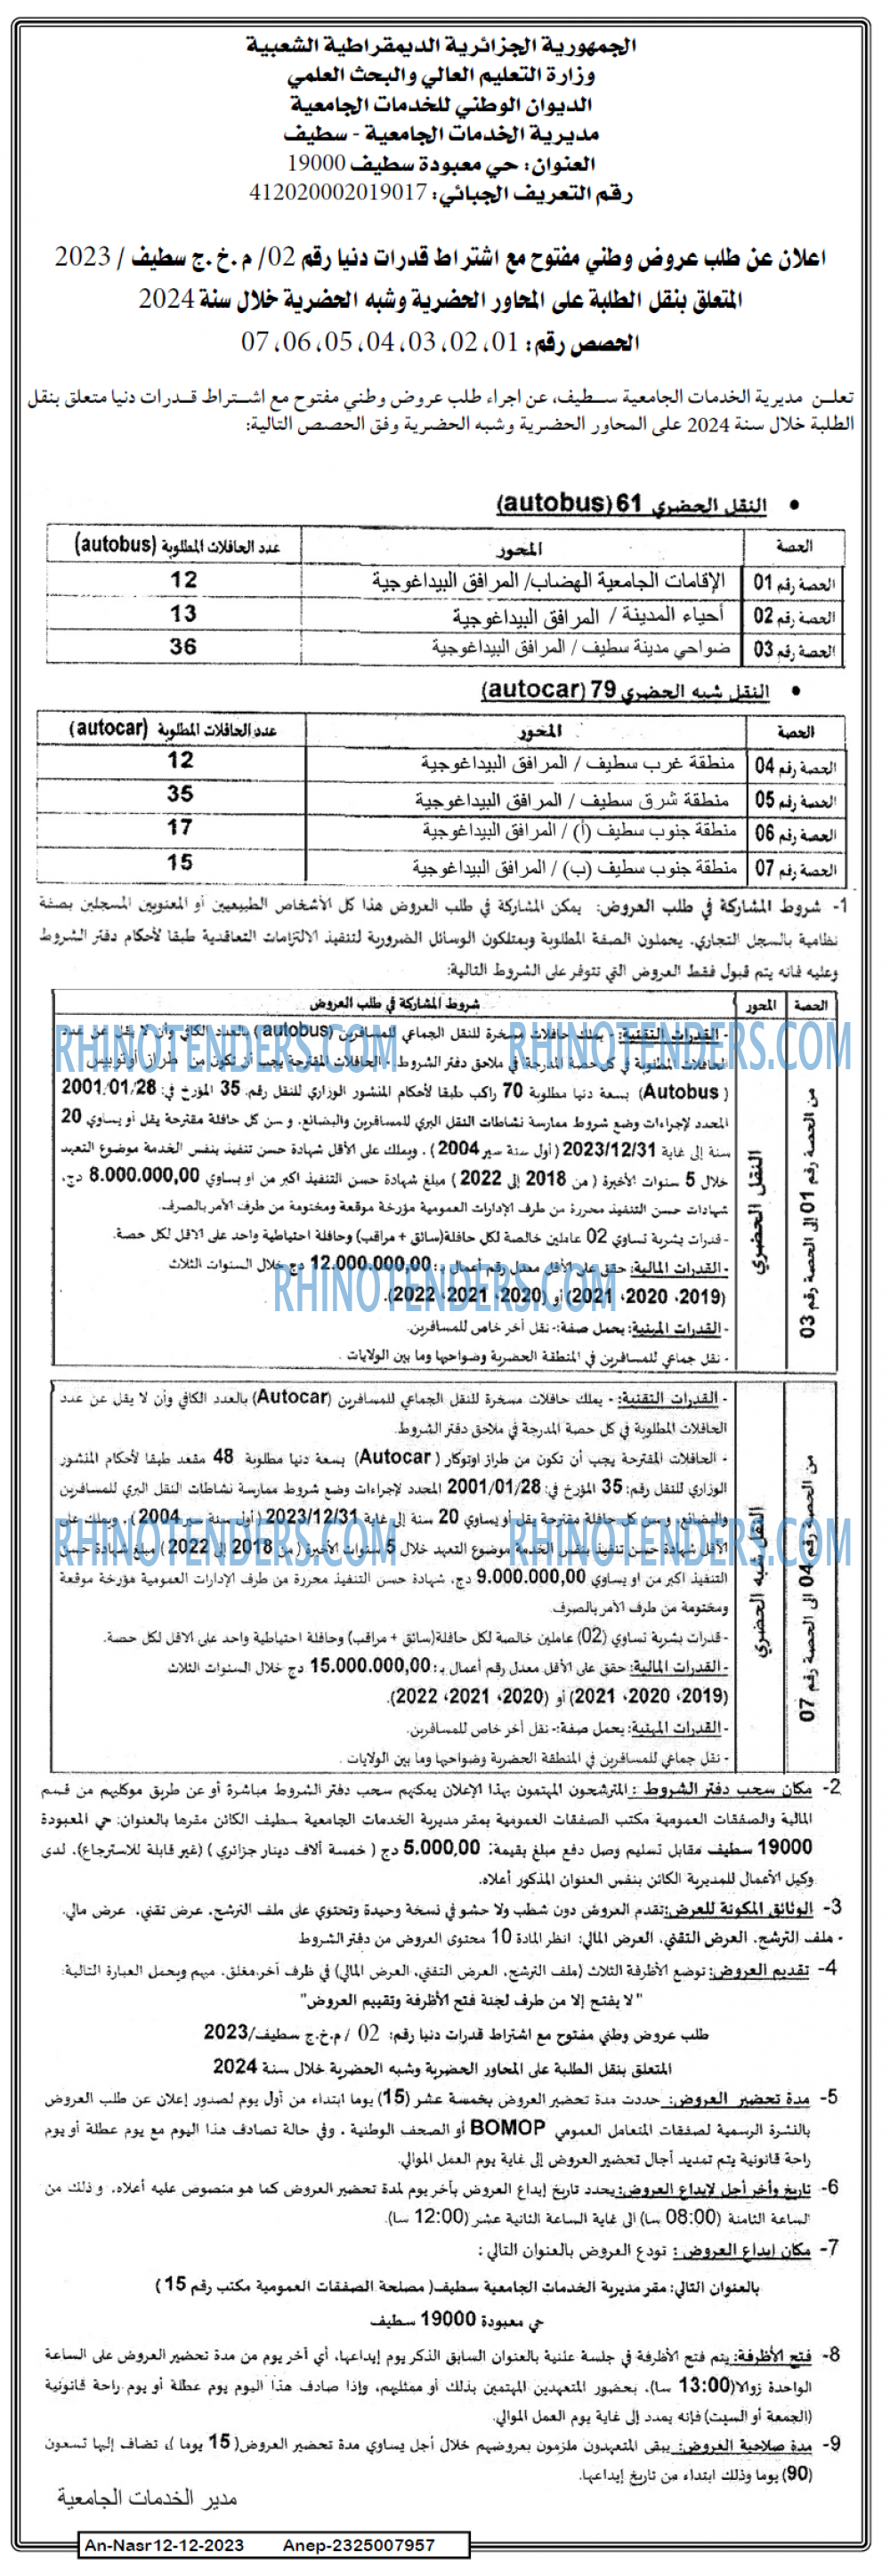 الجمهورية الجزائرية الديمقراطية الشعبية
وزارة التعليم العالي والبحث العلمي
الديوان الوطني للخدمات الجامعية
مديرية الخدمات الجامعية - سطيف
العنوان: حي معبودة سطيف 19000
رقم التعريف الجبائي: 412020002019017
اعلان عن طلب عروض وطني مفتوح مع اشتراط قدرات دنيا رقم 02/ م.خ.ج سطيف / 2023
المتعلق بنقل الطلبة على المحاور الحضرية وشبه الحضرية خلال سنة 2024
الحصص رقم: 01، 02، 03، 04، 05، 06، 07
تعلــن مديرية الخدمات الجامعية ســطيف، عن اجراء طلب عروض وطني مفتوح مع اشــتراط قــدرات دنيا متعلق بنقل
الطلبة خلال سنة 2024 على المحاور الحضرية وشبه الحضرية وفق الحصص التالية:
• النقل الحضري 61 (autobus)
الحصة المحور عدد الحافلات المطلوبة (autobus)
الحصة رقم 01 الإقامات الجامعية الهضاب/ المرافق البيداغوجية 12
الحصة رقم 02 أحياء المدينة / المرافق البيداغوجية 13
الحصة رقم 03 ضواحي مدينة سطيف / المرافق البيداغوجية 36
• النقل شبه الحضري 79 (autocar)
الحصة المحور عدد الحافلات المطلوبة (autocar)
الحصة رقم 04 منطقة غرب سطيف / المرافق البيداغوجية 12
الحصة رقم 05 منطقة شرق سطيف / المرافق البيداغوجية 35
الحصة رقم 06 منطقة جنوب سطيف (أ) / المرافق البيداغوجية 17
الحصة رقم 07 منطقة جنوب سطيف (ب) / المرافق البيداغوجية 15
1- شروط المشاركة في طلب العروض: يمكن المشاركة في طلب العروض هذا كل الأشخاص الطبيعيين أو المعنويين المسجلين بصفة
نظامية بالسجل التجاري، يحملون الصفة المطلوبة ويمتلكون الوسائل الضرورية لتنفيذ الالتزامات التعاقدية طبقا لأحكام دفتر الشروط
وعليه فانه يتم قبول فقط العروض التي تتوفر على الشروط التالية:
الحصة المحور شروط المشاركة في طلب العروض
من الحصة رقم 01 إلى الحصة رقم 03
النقل الحضري
- القدرات التقنية: - يملك حافلات مسخرة للنقل الجماعي للمسافرين (autobus) بالعدد الكافي وأن لا يقل عن عدد
الحافلات المطلوبة في كل حصة المدرجة في ملاحق دفتر الشروط - الحافلات المقترحة يجب أن تكون من طراز أوتوبيس
(Autobus) بسعة دنيا مطلوبة 70 راكب طبقا لأحكام المنشور الوزاري للنقل رقم. 35 المؤرخ في: 2001/01/28
المحدد لإجراءات وضع شروط ممارسة نشاطات النقل البري للمسافرين والبضائع، و سن كل حافلة مقترحة يقل أو يساوي 20
سنة إلى غاية 2023/12/31 (أول سنة سير 2004) . ويملك على الأقل شهادة حسن تنفيذ بنفس الخدمة موضوع التعهد
خلال 5 سنوات الأخيرة ( من 2018 إلى 2022 ) مبلغ شهادة حسن التنفيذ اكبر من او يساوي 8.000.000,00 دج،
شهادات حسن التنفيذ محررة من طرف الإدارات العمومية مؤرخة موقعة ومختومة من طرف الأمر بالصرف.
- قدرات بشرية تساوي 02 عاملين خالصة لكل حافلة(سائق + مراقب) وحافلة احتياطية واحد على الاقل لكل حصة.
- القدرات المالية: حقق على الأقل معدل رقم أعمال بـ: 12.000.000,00 دج خلال السنوات الثلاث
(2019، 2020، 2021) أو (2020، 2021، 2022).
- القدرات المهنية: يحمل صفة:- نقل آخر خاص للمسافرين.
- نقل جماعي للمسافرين في المنطقة الحضرية وضواحيها وما بين الولايات
من الحصة رقم 04 الى الحصة رقم 07
النقل شبه الحضري
- القدرات التقنية: - يملك حافلات مسخرة للنقل الجماعي للمسافرين (Autocar) بالعدد الكافي وأن لا يقل عن عدد
الحافلات المطلوبة في كل حصة المدرجة في ملاحق دفتر الشروط.
- الحافلات المقترحة يجب أن تكون من طراز اوتوكار (Autocar) بسعة دنيا مطلوبة 48 مقعد طبقا لأحكام المنشور
الوزاري للنقل رقم: 35 المؤرخ في: 2001/01/28 المحدد لإجراءات وضع شروط ممارسة نشاطات النقل البري للمسافرين
والبضائع، و سن كل حافلة مقترحة يقل أو يساوي 20 سنة إلى غاية 2023/12/31 (أول سنة سير 2004) . ويملك على
الأقل شهادة حسن تنفيذ بنفس الخدمة موضوع التعهد خلال 5 سنوات الأخيرة ( من 2018 إلى 2022 ) مبلغ شهادة حسن
التنفيذ اكبر من او يساوي 9.000.000,00 دج، شهادة حسن التنفيذ محررة من طرف الإدارات العمومية مؤرخة موقعة
ومختومة من طرف الأمر بالصرف.
- قدرات بشرية تساوي (02) عاملين خالصة لكل حافلة(سائق + مراقب) وحافلة احتياطية واحد على الاقل لكل حصة.
- القدرات المالية: حقق على الأقل معدل رقم أعمال بـ: 15.000.000,00 دج خلال السنوات الثلاث
(2019، 2020، 2021) أو (2020، 2021، 2022).
- القدرات المهنية: يحمل صفة:- نقل آخر خاص للمسافرين.
- نقل جماعي للمسافرين في المنطقة الحضرية وضواحيها وما بين الولايات .
2- مكان سحب دفتر الشروط : المترشحون المهتمون بهذا الإعلان يمكنهم سحب دفتر الشروط مباشرة أو عن طريق موكليهم من قسم
المالية والصفقات العمومية مكتب الصفقات العمومية بمقر مديرية الخدمات الجامعية سطيف الكائن مقرها بالعنوان: حي المعبودة
19000 سطيف مقابل تسليم وصل دفع مبلغ بقيمة: 5.000,00 دج ( خمسة ألاف دينار جزائري ) (غير قابلة للاسترجاع). لدى
وكيل الأعمال للمديرية الكائن بنفس العنوان المذكور أعلاه.
3- الوثائق المكونة للعرض:تقدم العروض دون شطب ولا حشو في نسخة وحيدة وتحتوي على ملف الترشح، عرض تقني، عرض مالي.
- ملف الترشح، العرض التقني، العرض المالي: انظر المادة 10 محتوى العروض من دفتر الشروط
4- تقديم العروض: توضع الأظرفة الثلاث (ملف الترشح، العرض التقني، العرض المالي) في ظرف آخر،مغلق، مبهم ويحمل العبارة التالية:
"لا يفتح إلا من طرف لجنة فتح الأظرفة وتقييم العروض"
طلب عروض وطني مفتوح مع اشتراط قدرات دنيا رقم: 02 / م.خ.ج سطيف/2023
المتعلق بنقل الطلبة على المحاور الحضرية وشبه الحضرية خلال سنة 2024
5- مدة تحضير العروض: حددت مدة تحضير العروض بخمسة عشر (15) يوما ابتداء من أول يوم لصدور إعلان عن طلب العروض
بالنشرة الرسمية لصفقات المتعامل العمومي BOMOP أو الصحف الوطنية . وفي حالة تصادف هذا اليوم مع يوم عطلة أو يوم
راحة قانونية يتم تمديد أجال تحضير العروض إلى غاية يوم العمل الموالي.
6- تاريخ وآخر أجل لإيداع العروض:يحدد تاريخ إيداع العروض بآخر يوم لمدة تحضير العروض كما هو منصوص عليه أعلاه، و ذلك من
الساعة الثامنة (08:00 سا) الى غاية الساعة الثانية عشر (12:00 سا).
7- مكان إيداع العروض : تودع العروض بالعنوان التالي :
بالعنوان التالي: مقر مديرية الخدمات الجامعية سطيف( مصلحة الصفقات العمومية مكتب رقم 15 )
حي معبودة 19000 سطيف
8- فتح الأظرفة: يتم فتح الأظرفة في جلسة علنية بالعنوان السابق الذكر يوم إيداعها، أي آخر يوم من مدة تحضير العروض على الساعة
الواحدة زوالا(13:00 سا)، بحضور المتعهدين المهتمين بذلك أو ممثليهم، وإذا صادف هذا اليوم يوم عطلة أو يوم راحة قانونية
(الجمعة أو السبت) فإنه يمدد إلى غاية يوم العمل الموالي.
9- مدة صلاحية العروض: يبقى المتعهدون ملزمون بعروضهم خلال أجل يساوي مدة تحضير العروض( 15 يوما )، تضاف إليها تسعون
(90) يوما وذلك ابتداء من تاريخ إيداعها.
مدير الخدمات الجامعية
An-Nasr12-12-2023 Anep-2325007957
RHINOTENDERS.COM
RHINOTENDERS.COM
RHINOTENDERS.COM
RHINOTENDERS.COM
RHINOTENDERS.COM